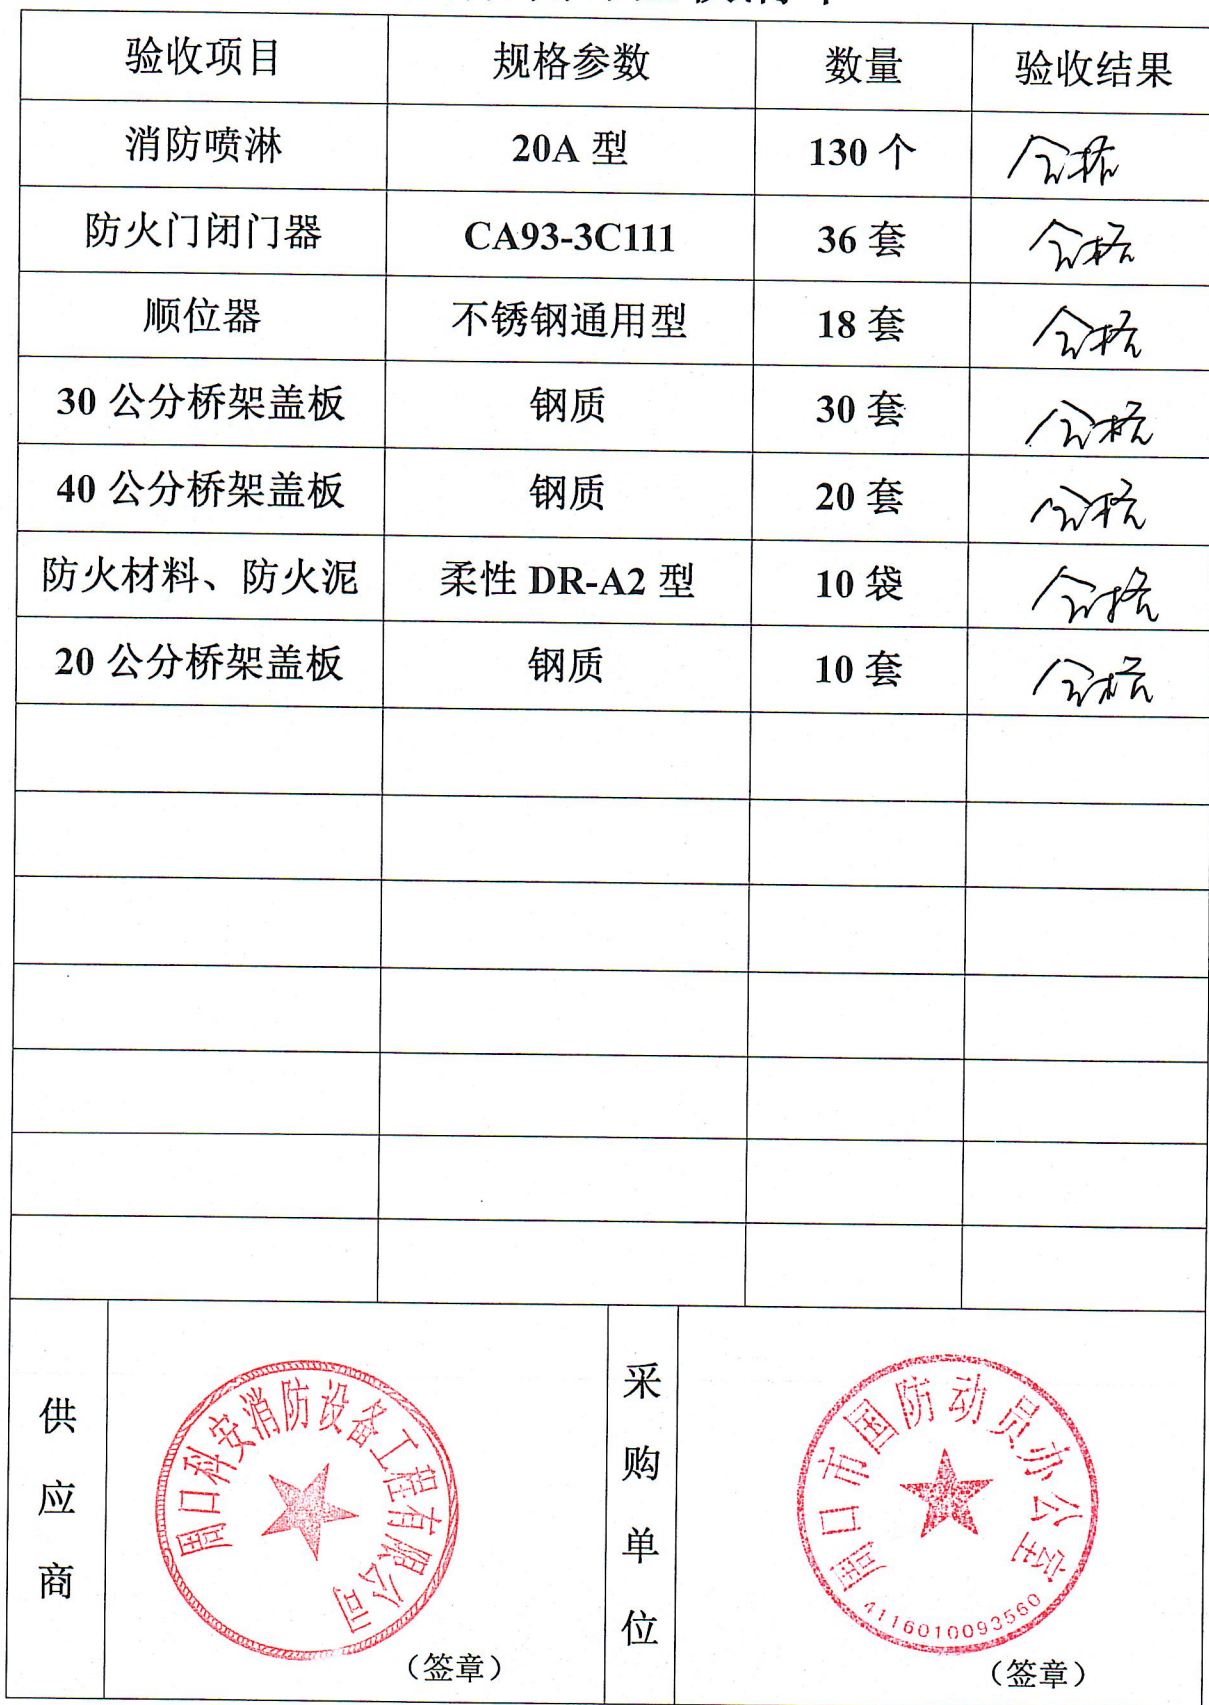 验收项目 规格参数 数量 验收结果
消防喷淋 20A 型 130 个 合格
防火门闭门器 CA93-3C111 36 套 合格
顺位器 不锈钢通用型 18 套 合格
30 公分桥架盖板 钢质 30 套 合格
40 公分桥架盖板 钢质 20 套 合格
防火材料、防火泥 柔性 DR-A2 型 10 袋 合格
20 公分桥架盖板 钢质 10 套 合格
供应商
周口科安消防设备工程有限公司
（签章）
采购单位
周口市国防动员办公室
4116010093560
（签章）